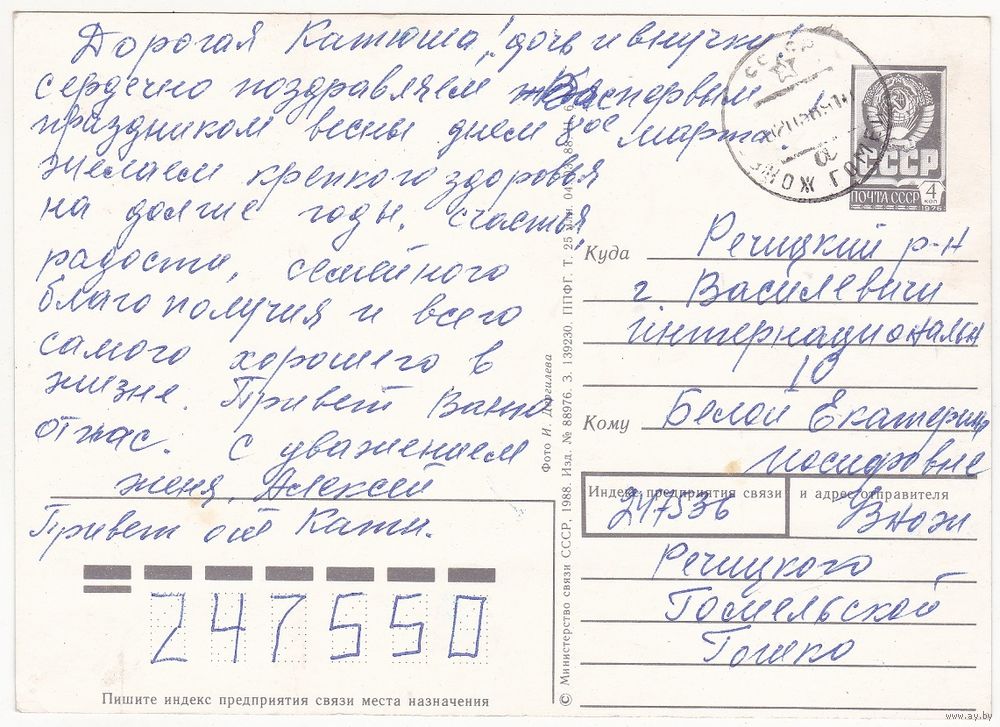 Дорогая Катюша! дочь и внучки!
сердечно поздравляем Вас первым
праздником весны днем 8ое марта
желаем крепкого здоровья
на долгие годы, счастья,
радости, семейного
благополучия и всего
самого хорошего в
жизне. Привет Ване
от нас. С уважением
женя, Алексей
Привет от Кати.
247550
Пишите индекс предприятия связи места назначения
Фото И. Дергилева
© Министерство связи СССР, 1988. Изд. № 88976. З. 139230. ППФГ. Т. 25 млн.
СССР
ГОМЕЛ
СССР
ПОЧТА СССР
4
КОП
1976
Куда Речицкий р-н
г. Василевичи
интернациональн
10
Кому Белой Екатерине
иосифовне
Индекс предприятия связи и адрес отправителя
247536 Внож
Речицкого
Гомельской
Гошко
www.ay.by